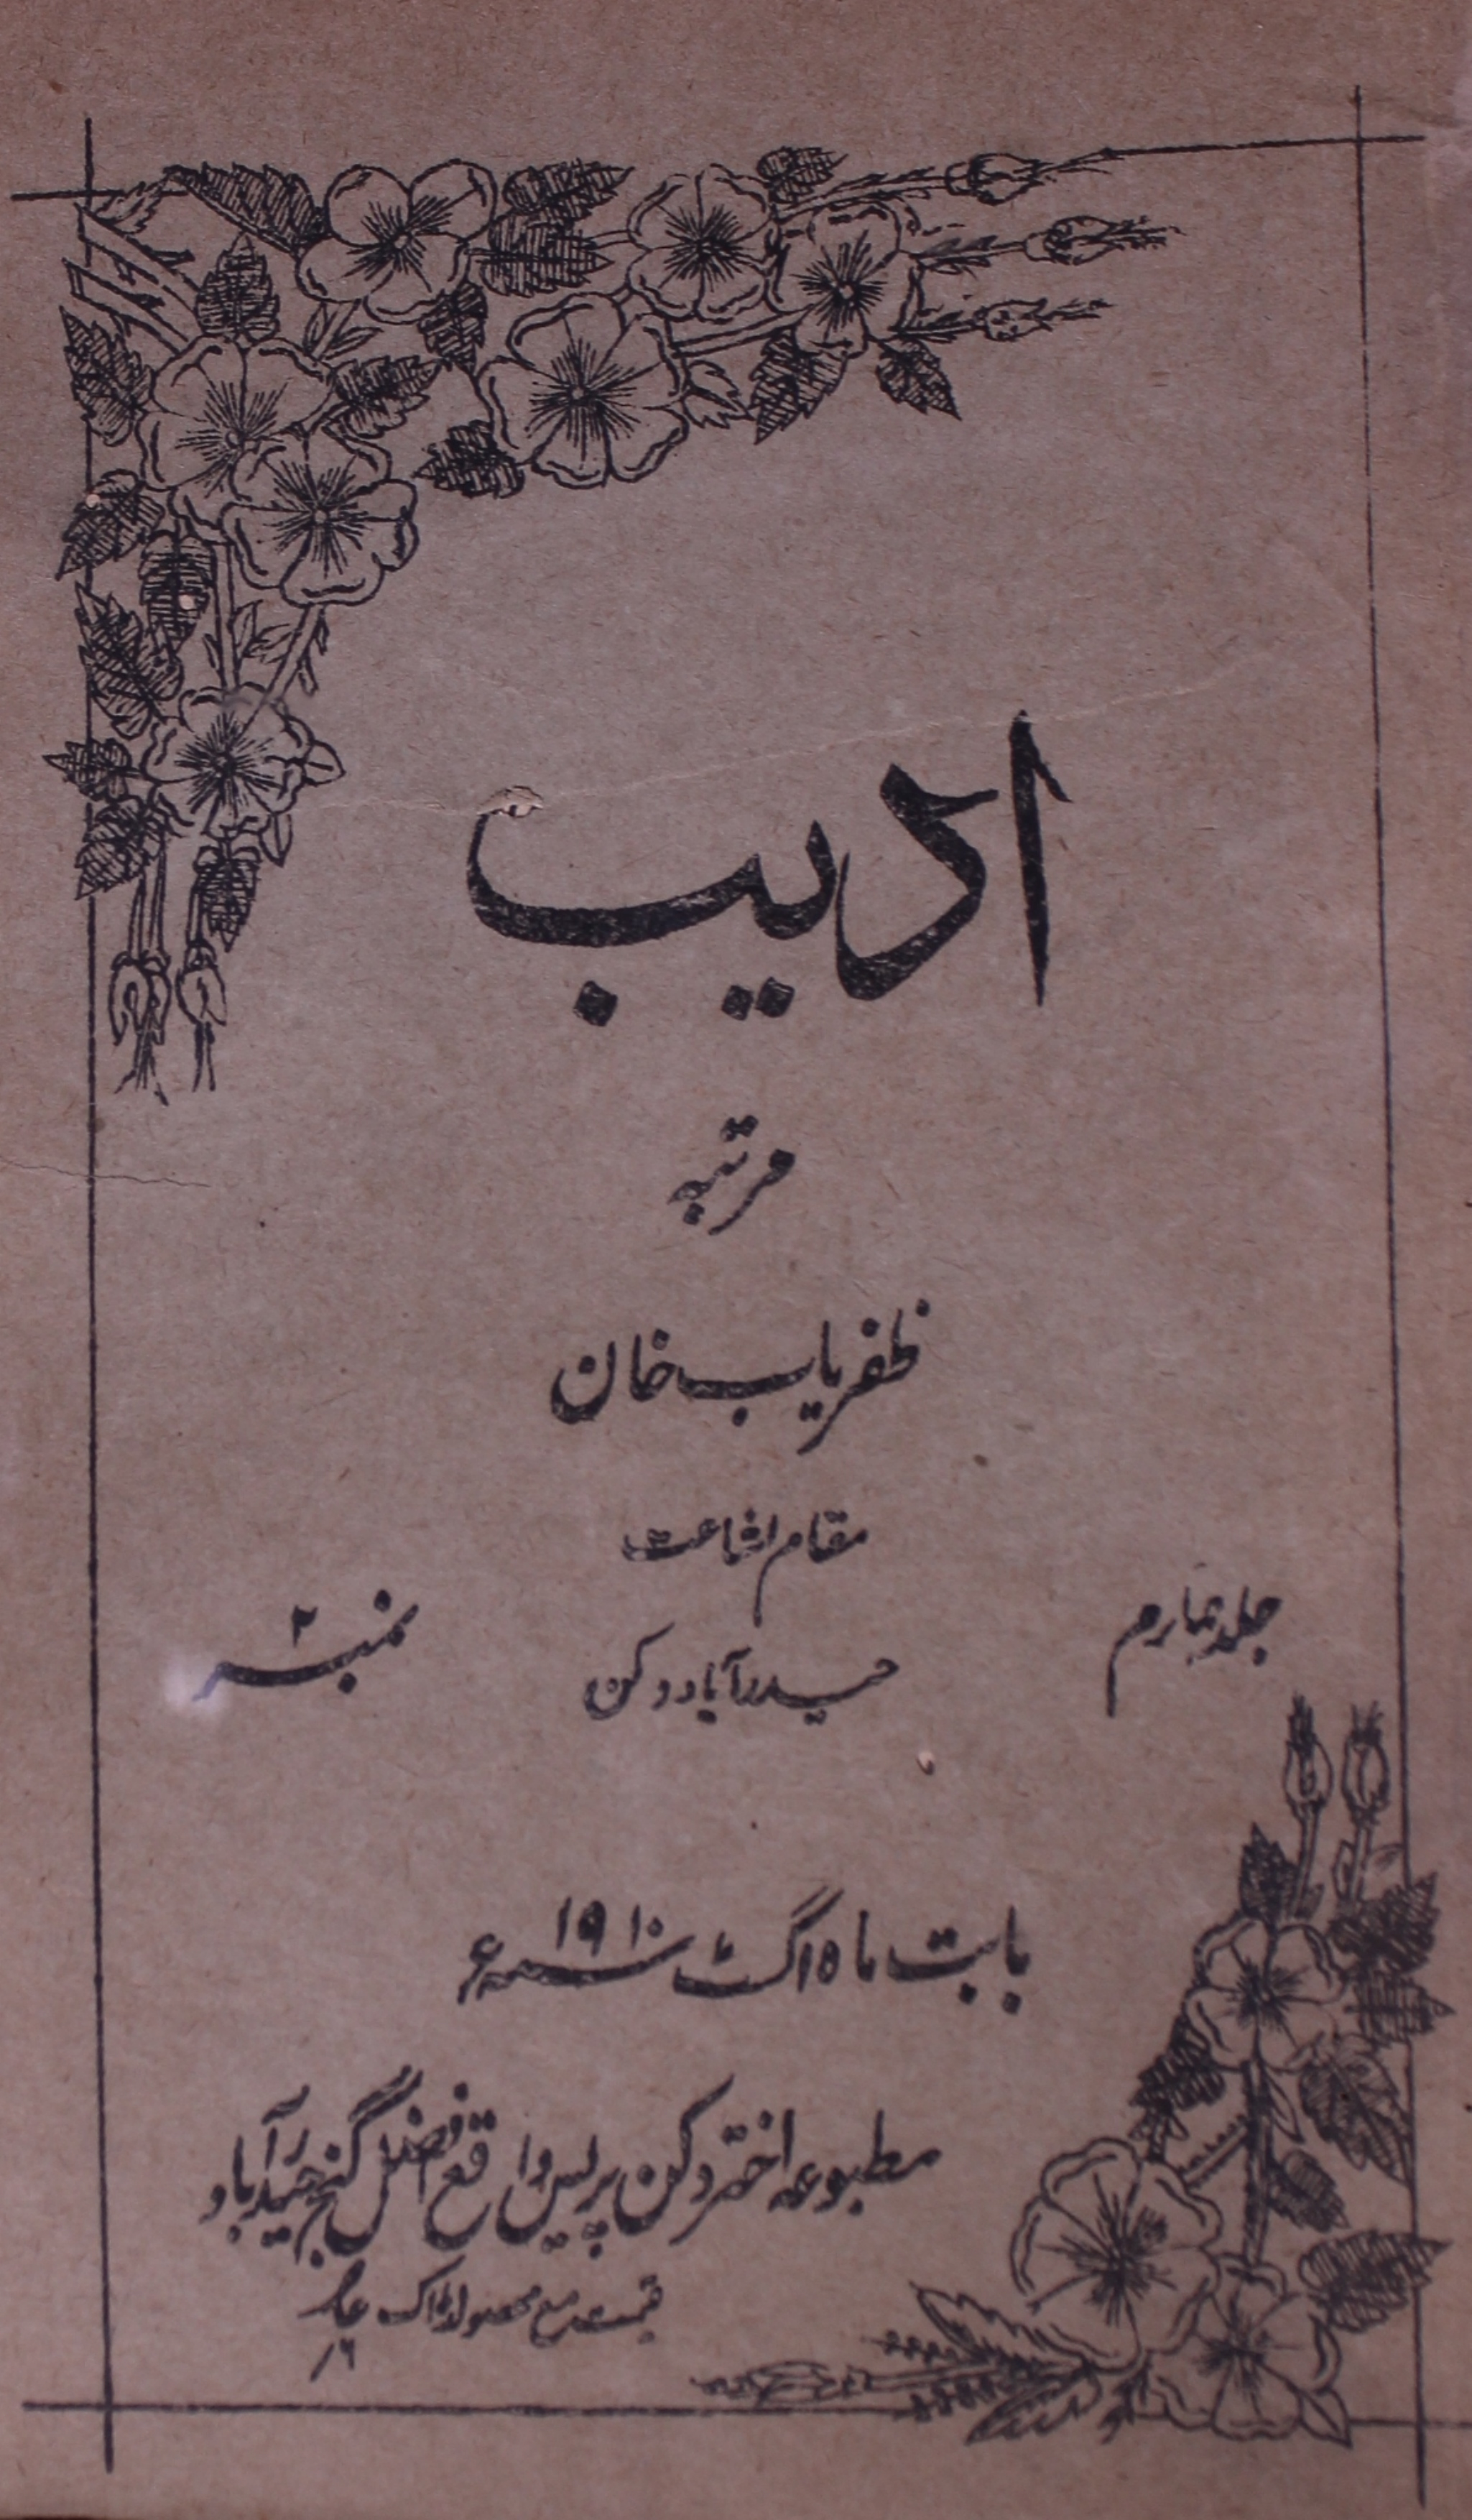 ادیب
مرتبہ
ظفریاب خان
مقام اشاعت
جلد چہارم
نمبر ۲
حیدرآباد دکن
بابت ماہ اگسٹ سنہ ۱۹۱۰ ء
مطبوعہ اختر دکن پریس واقع افضل گنج حیدرآباد
قیمت مع محصول ڈاک